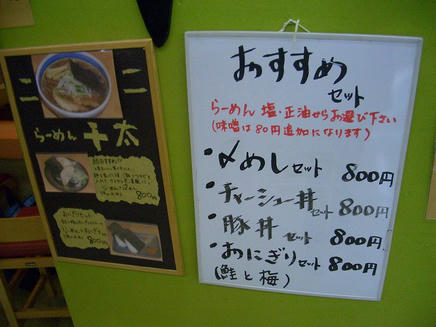 二
二
らーめん 千太
800円
おにぎりセット
800円
おすすめ
セット
らーめん 塩・正油からお選び下さい
(味噌は80円追加になります)
・〆めしセット 800円
・チャーシュー丼セット 800円
・豚丼セット 800円
・おにぎりセット 800円
(鮭と梅)